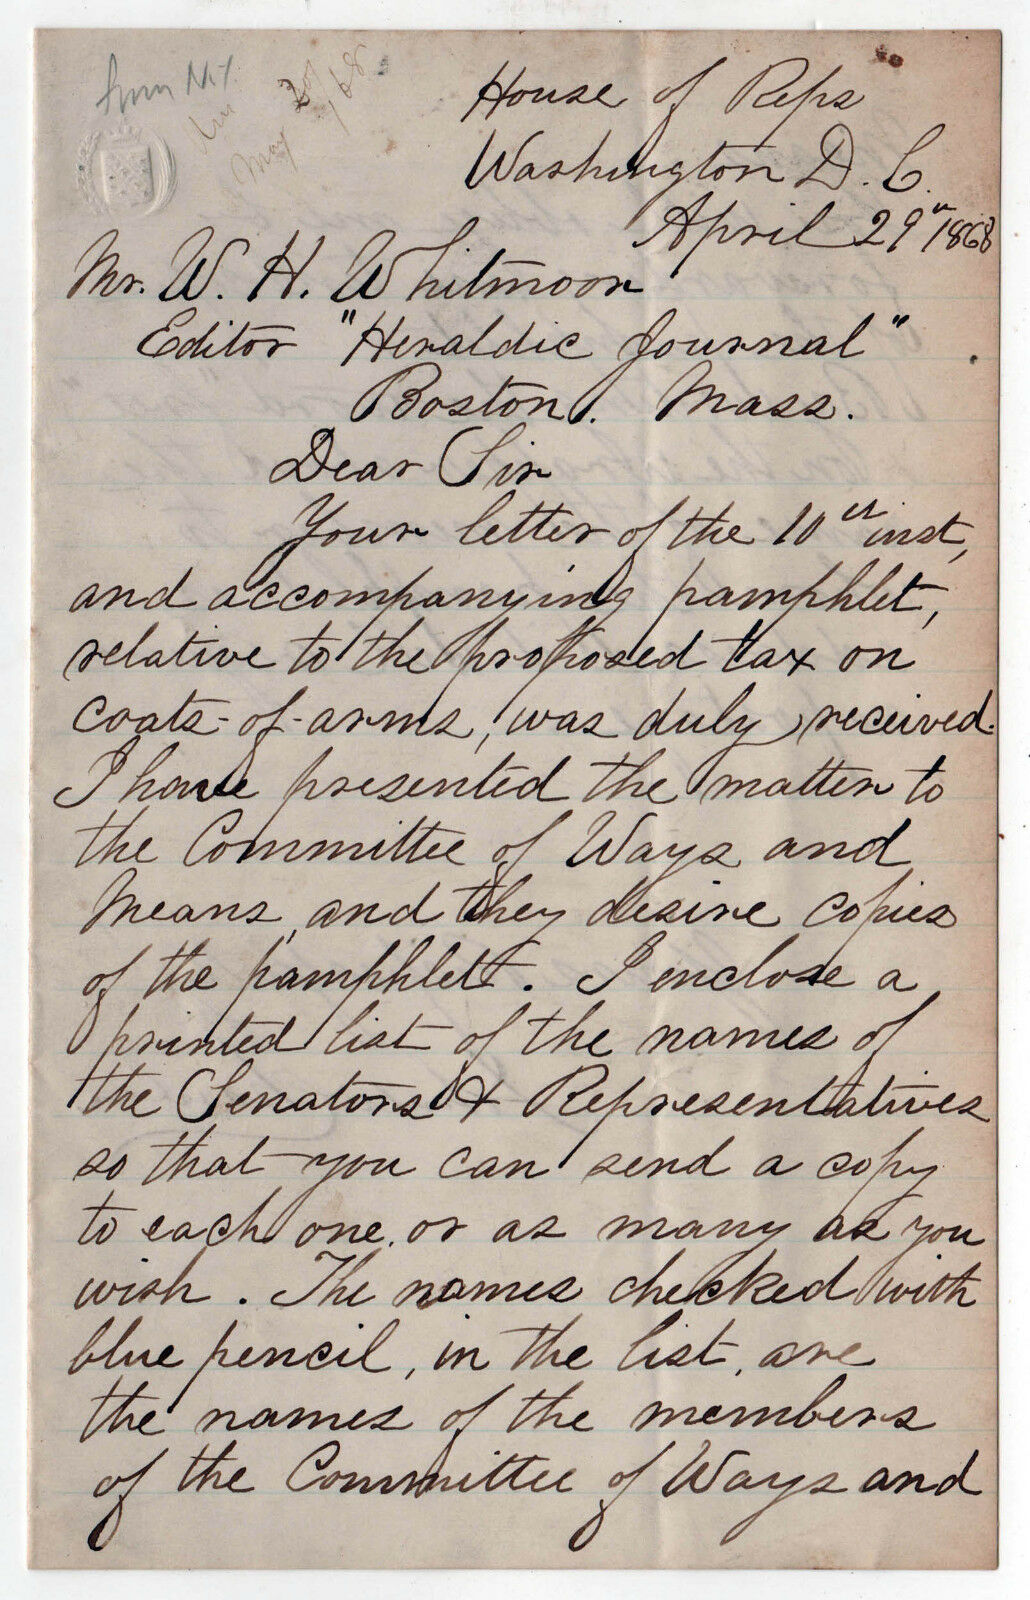 from N.Y.
May
/68
House of Reps
Washington D. C.
April 29th 1868
Mr. W. H. Whitmoor
Editor "Heraldic Journal"
Boston. Mass.
Dear Sir
Your letter of the 10th inst,
and accompanying pamphlet,
relative to the proposed tax on
coats-of-arms, was duly received.
I have presented the matter to
the Committee of Ways and
Means, and they desire copies
of the pamphlet. I enclose a
printed list of the names of
the Senators & Representatives
so that you can send a copy
to each one, or as many as you
wish. The names checked with
blue pencil, in the list, are
the names of the members
of the Committee of Ways and